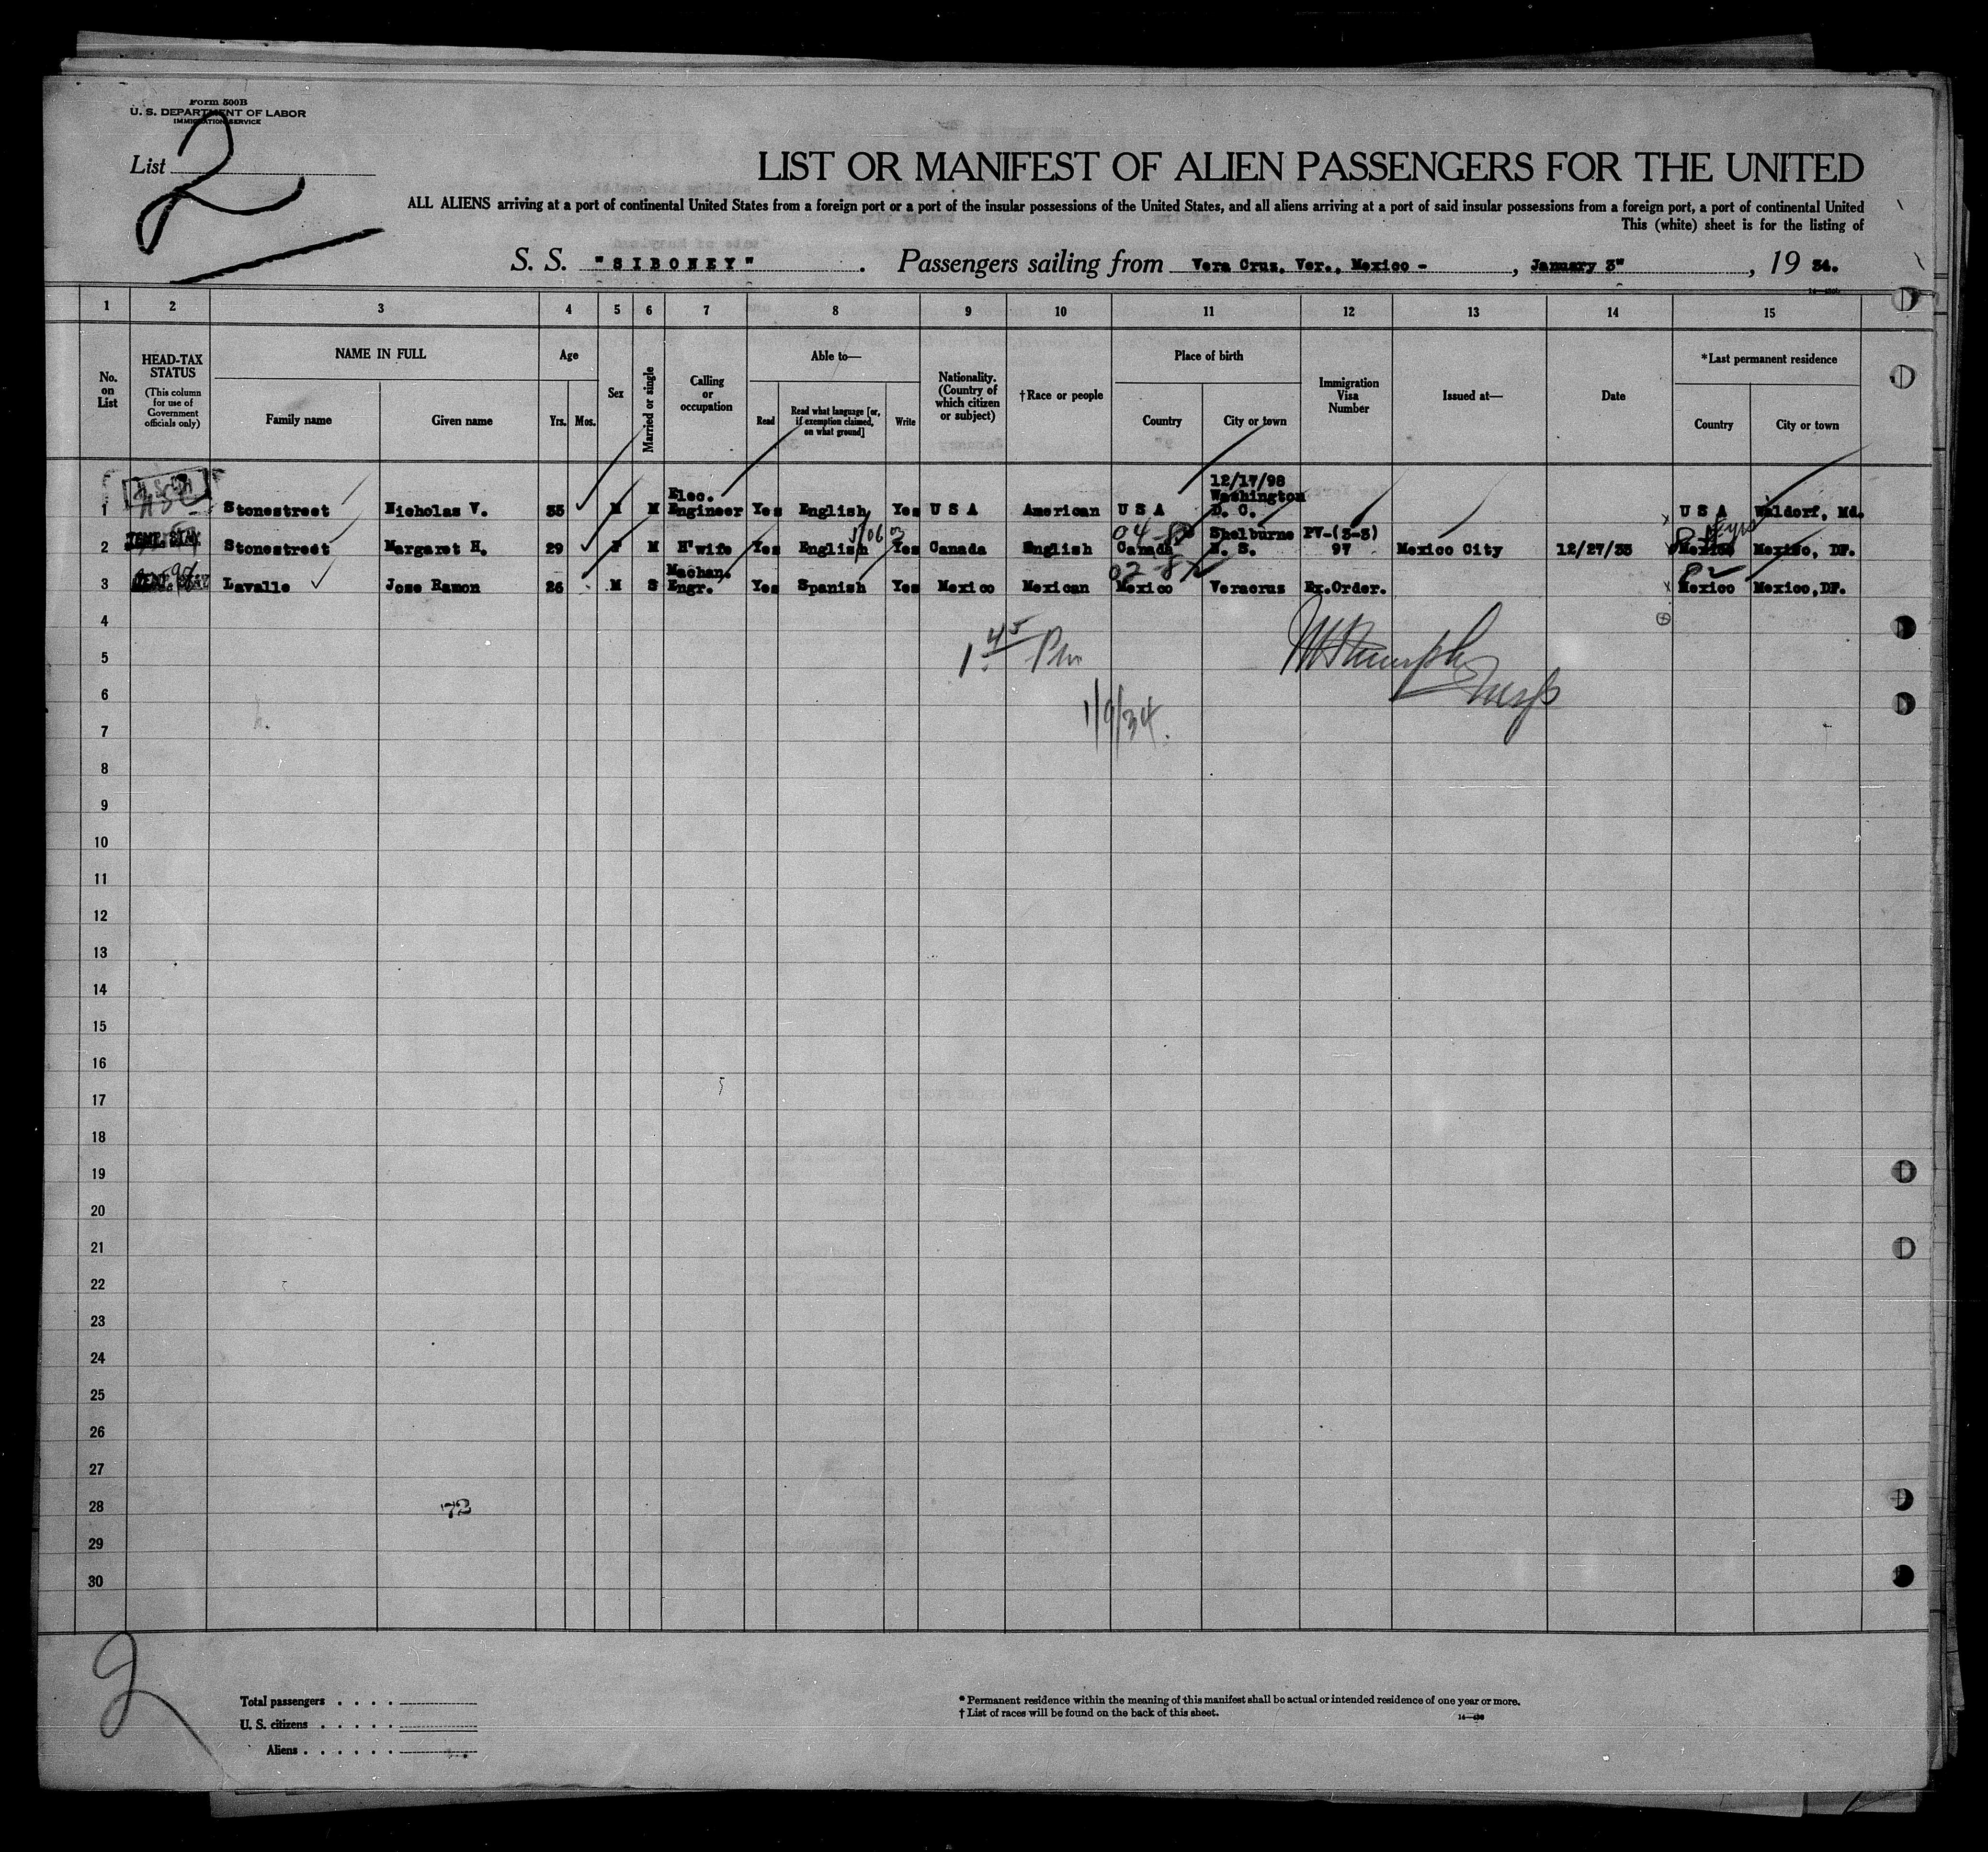 Form 500B
U. S. DEPARTMENT OF LABOR
IMMIGRATION SERVICE
List 2
LIST OR MANIFEST OF ALIEN PASSENGERS FOR THE UNITED
ALL ALIENS arriving at a port of continental United States from a foreign port or a port of the insular possessions of the United States, and all aliens arriving at a port of said insular possessions from a foreign port, a port of continental United
This (white) sheet is for the listing of
S. S. "SIBONEY". Passengers sailing from Vera Cruz, Ver., Mexico - , January 3" , 19 34.
1 2 3 4 5 6 7 8 9 10 11 12 13 14 15
No. on List
HEAD-TAX STATUS
(This column for use of Government officials only)
NAME IN FULL
Family name
Given name
Age
Yrs.
Mos.
Sex
Married or single
Calling or occupation
Able to—
Read
Read what language [or, if exemption claimed, on what ground]
Write
Nationality. (Country of which citizen or subject)
†Race or people
Place of birth
Country
City or town
Immigration Visa Number
Issued at—
Date
*Last permanent residence
Country
City or town
1 Stonestreet Nicholas V. 35 M M Elec. Engineer Yes English Yes U S A American U S A 12/17/98 Washington D. C. U S A Waldorf, Md.
2 TEMP. STAY Stonestreet Margaret H. 29 F M H'wife Yes English Yes Canada English Canada Shelburne N. S. PV-(3-3) 97 Mexico City 12/27/33 Mexico Mexico, DF.
3 Lavalle Jose Ramon 26 M S Mechan. Engr. Yes Spanish Yes Mexico Mexican Mexico Veracruz Ex.Order. Mexico Mexico,DF.
4
5 1 45 Pm
6
7 1/9/34.
8
9
10
11
12
13
14
15
16
17
18
19
20
21
22
23
24
25
26
27
28 72
29
30
2
Total passengers
U. S. citizens
Aliens
* Permanent residence within the meaning of this manifest shall be actual or intended residence of one year or more.
† List of races will be found on the back of this sheet.